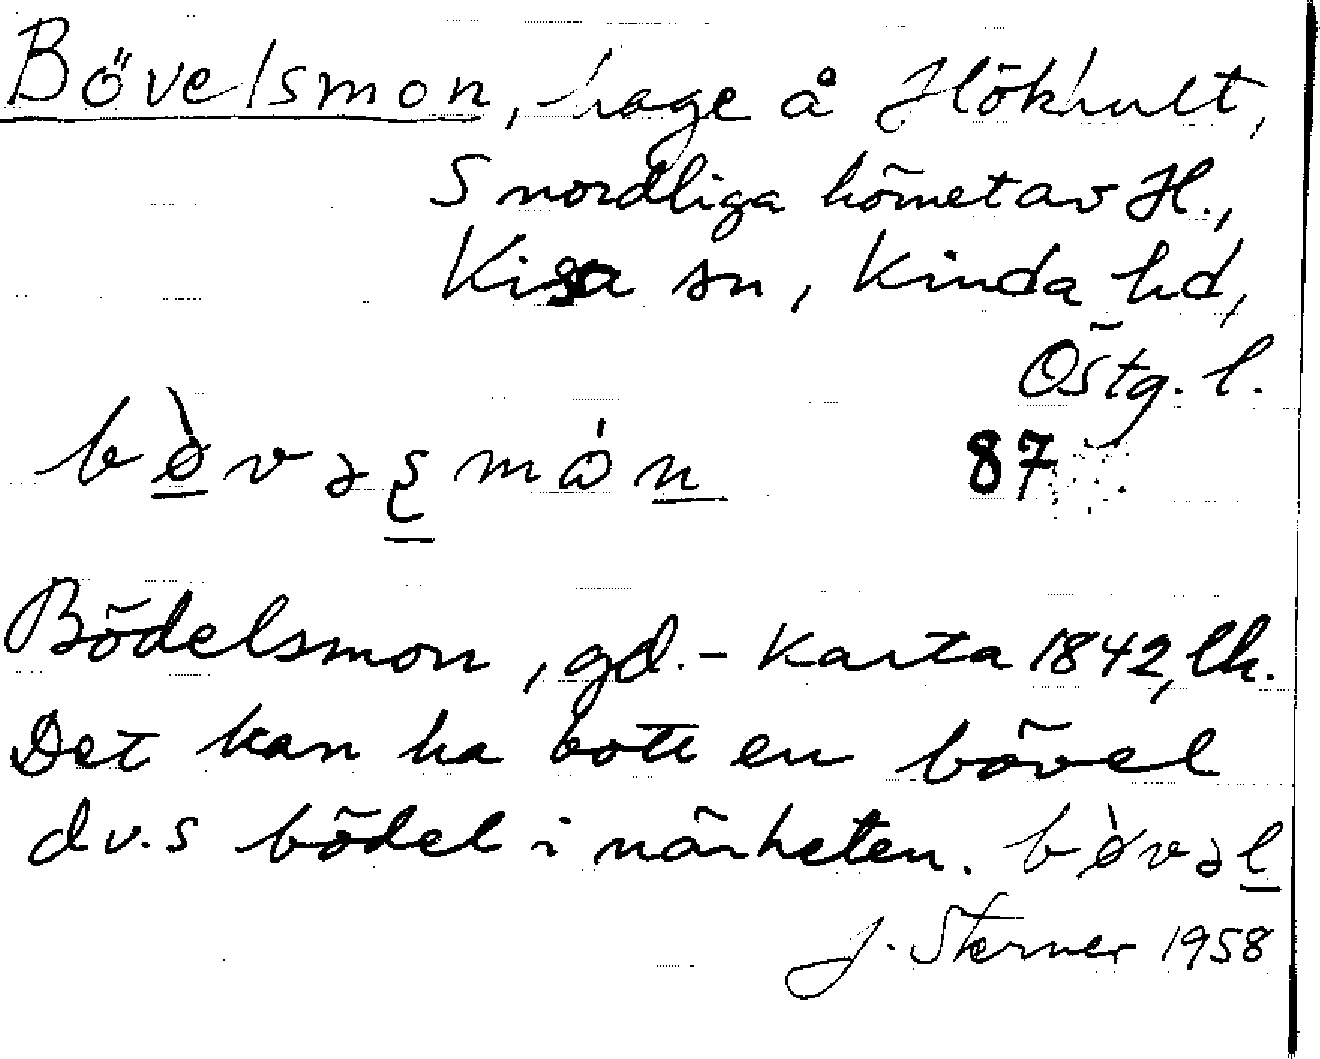 Bövelsmon, hage å Hökhult,
S nordliga hörnet av H.,
Kisa sn, Kinda hd,
Östg. l.
bø̀vəʂmón 87
Bödelsmon, gd. - Karta 1842, lk.
Det kan ha bott en bövel
dv.s bödel i närheten. bø̀vəl
J. Sterner 1958